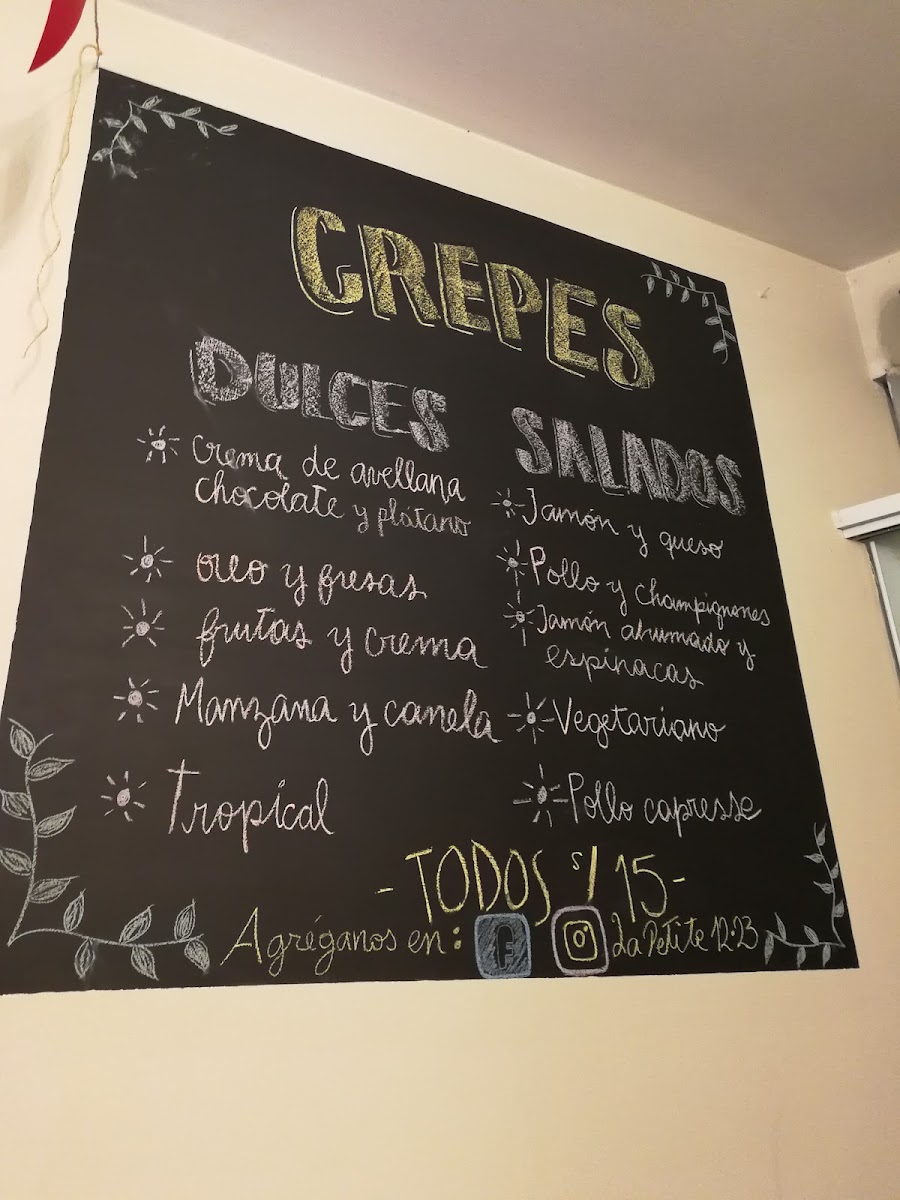 CREPES
DULCES
Crema de avellana
chocolate y plátano
oreo y fresas
frutas y crema
Manzana y canela
Tropical
SALADOS
Jamón y queso
Pollo y champignones
Jamón ahumado y
espinacas
Vegetariano
Pollo capresse
-TODOS S/ 15-
Agréganos en: f La Petite 12:23